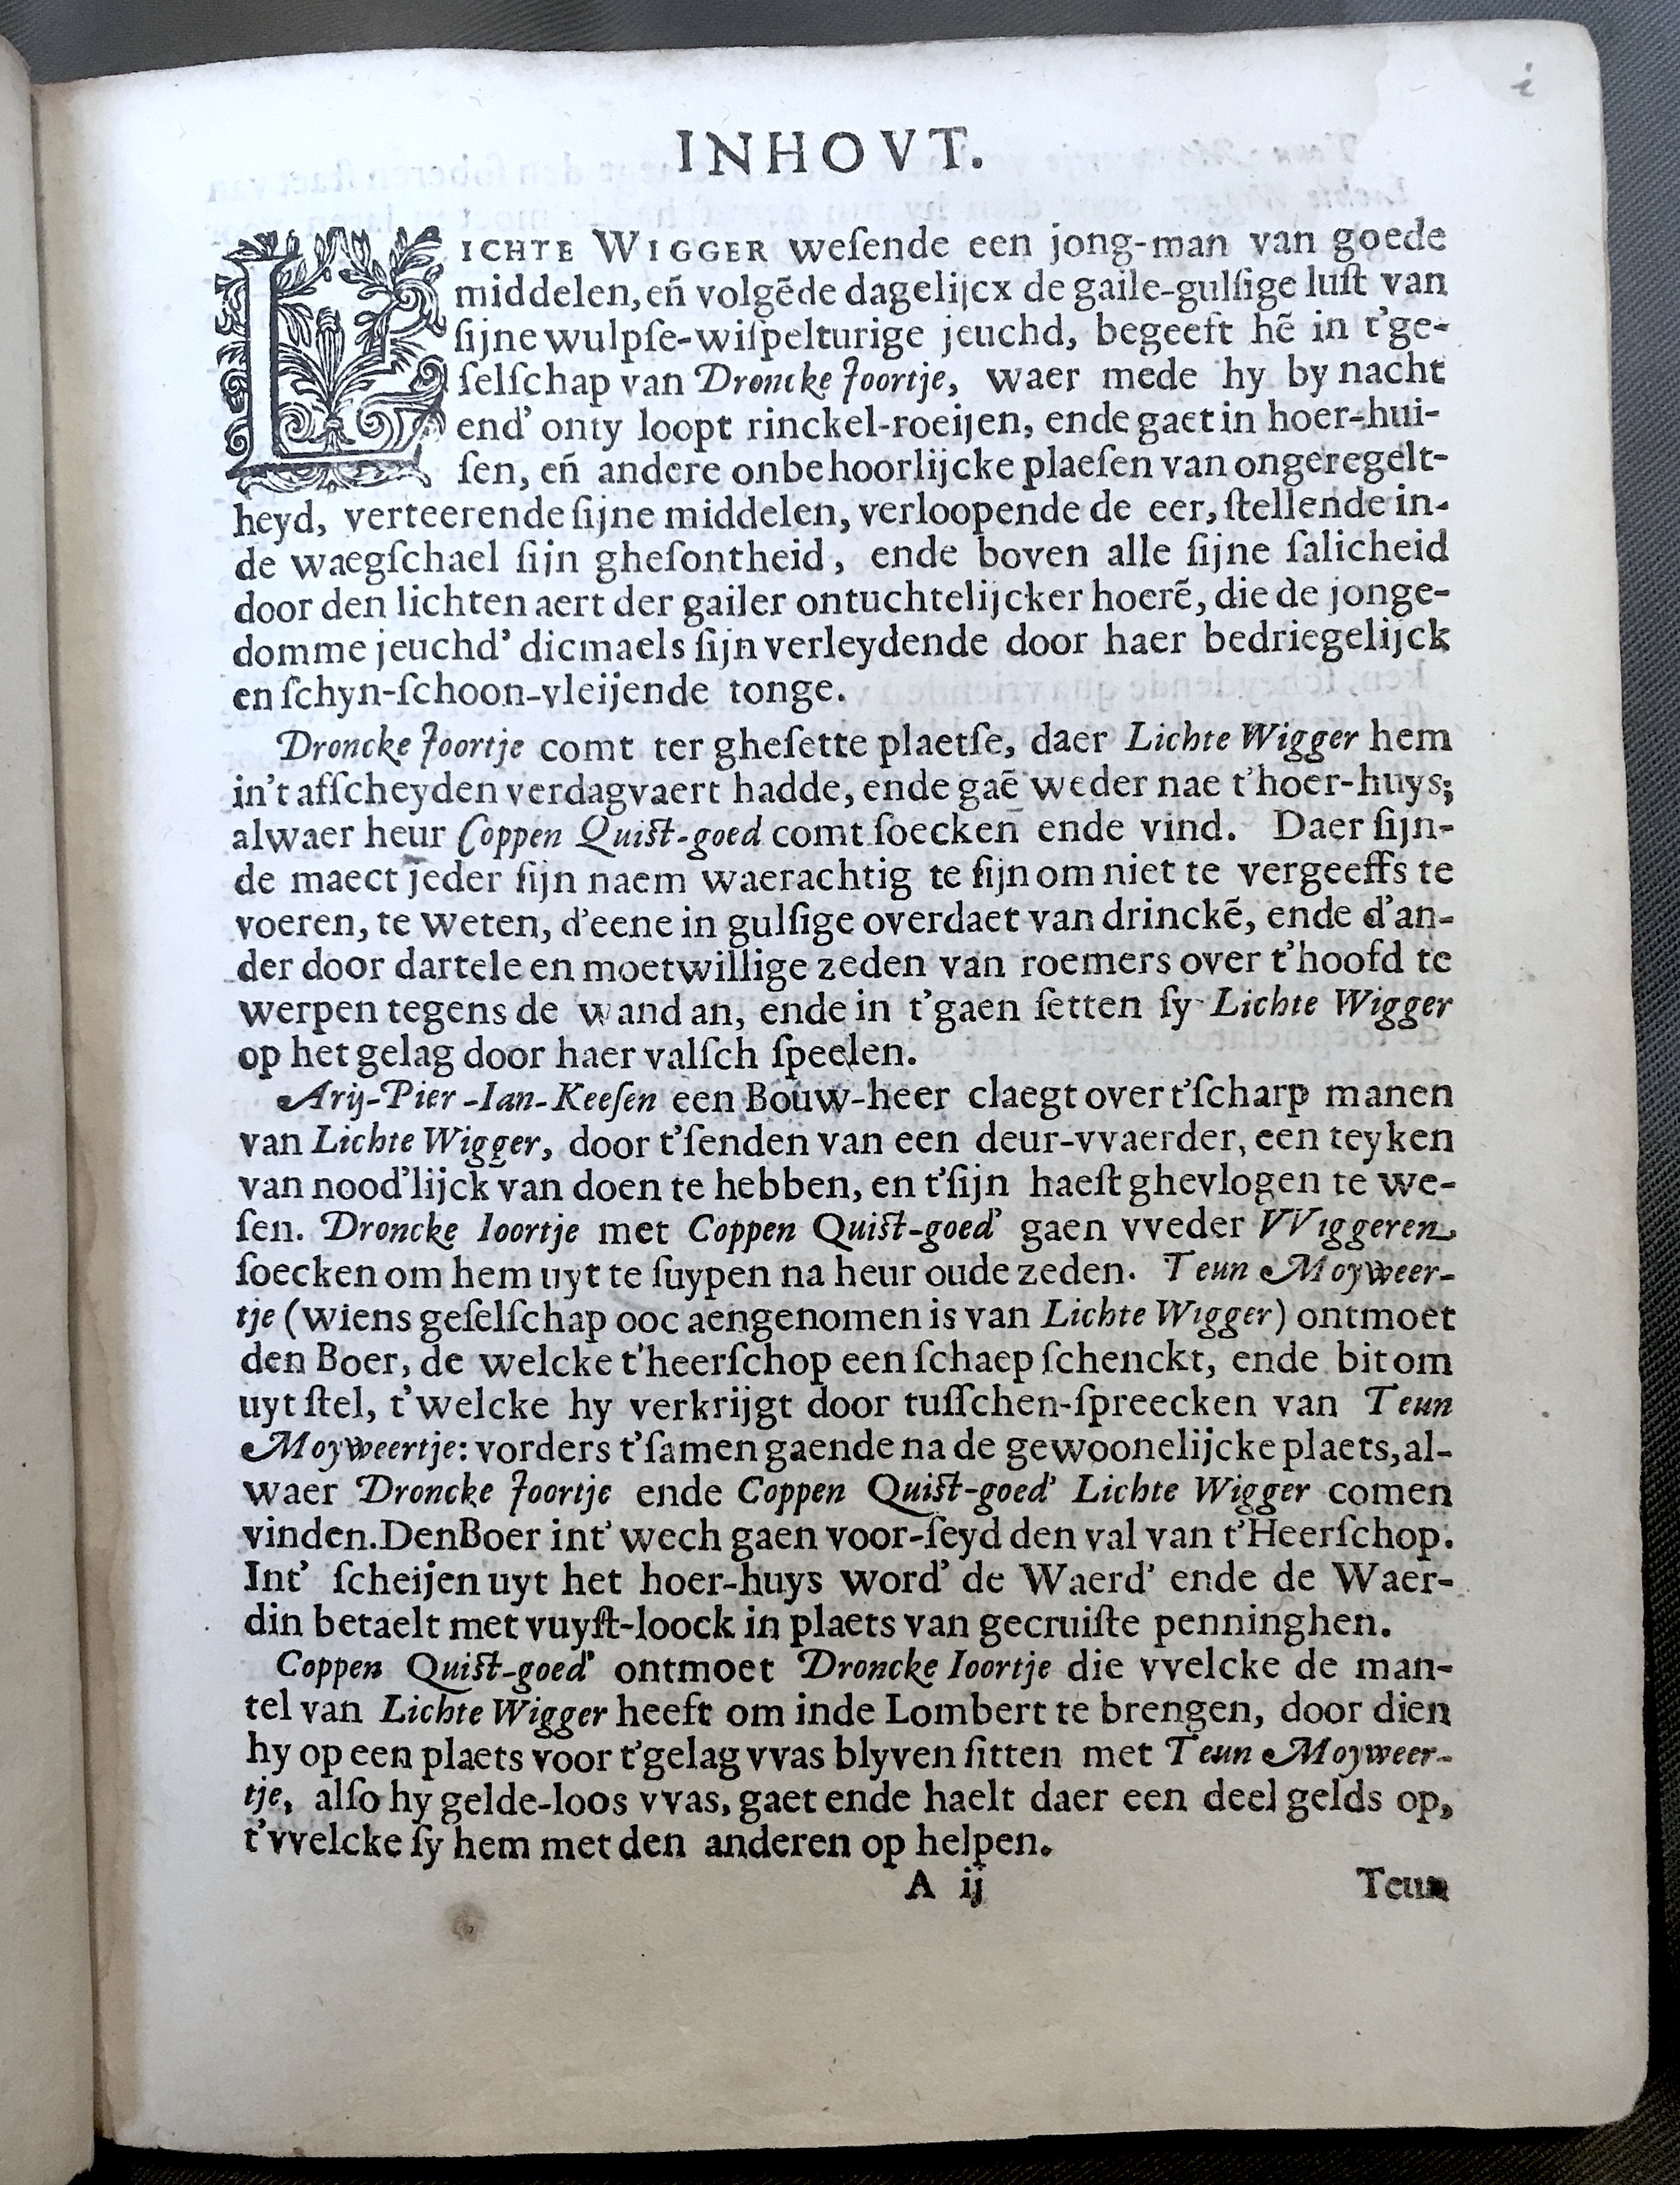 i
INHOVT.
LICHTE WIGGER weſende een jong-man van goede
middelen, en̄ volgẽde dagelijcx de gaile-gulſige luſt van
ſijne wulpſe-wiſpelturige jeuchd, begeeft hẽ in t'ge-
ſelſchap van Droncke Joortje, waer mede hy by nacht
end' onty loopt rinckel-roeijen, ende gaet in hoer-hui-
ſen, en̄ andere onbehoorlijcke plaeſen van ongeregelt-
heyd, verteerende ſijne middelen, verloopende de eer, ſtellende in-
de waegſchael ſijn gheſontheid, ende boven alle ſijne ſalicheid
door den lichten aert der gailer ontuchtelijcker hoerẽ, die de jonge-
domme jeuchd' dicmaels ſijn verleydende door haer bedriegelijck
en ſchyn-ſchoon-vleijende tonge.
Droncke Joortje comt ter gheſette plaetſe, daer Lichte Wigger hem
in't afſcheyden verdagvaert hadde, ende gaẽ weder nae t'hoer-huys;
alwaer heur Coppen Quiſt-goed comt ſoecken ende vind. Daer ſijn-
de maect jeder ſijn naem waerachtig te ſijn om niet te vergeeffs te
voeren, te weten, d'eene in gulſige overdaet van drinckẽ, ende d'an-
der door dartele en moetwillige zeden van roemers over t'hoofd te
werpen tegens de wand an, ende in t'gaen ſetten ſy Lichte Wigger
op het gelag door haer valſch ſpeelen.
Arij-Pier-Ian-Keeſen een Bouw-heer claegt over t'ſcharp manen
van Lichte Wigger, door t'ſenden van een deur-vvaerder, een teyken
van nood'lijck van doen te hebben, en t'ſijn haeſt ghevlogen te we-
ſen. Droncke Ioortje met Coppen Quiſt-goed' gaen vveder VViggeren
ſoecken om hem uyt te ſuypen na heur oude zeden. Teun Moyweer-
tje (wiens geſelſchap ooc aengenomen is van Lichte Wigger) ontmoet
den Boer, de welcke t'heerſchop een ſchaep ſchenckt, ende bit om
uyt ſtel, t'welcke hy verkrijgt door tuſſchen-ſpreecken van Teun
Moyweertje: vorders t'ſamen gaende na de gewoonelijcke plaets, al-
waer Droncke Joortje ende Coppen Quiſt-goed' Lichte Wigger comen
vinden. Den Boer int' wech gaen voor-ſeyd den val van t'Heerſchop.
Int' ſcheijen uyt het hoer-huys word' de Waerd' ende de Waer-
din betaelt met vuyſt-loock in plaets van gecruiſte penninghen.
Coppen Quiſt-goed' ontmoet Droncke Ioortje die vvelcke de man-
tel van Lichte Wigger heeft om inde Lombert te brengen, door dien
hy op een plaets voor t'gelag vvas blyven ſitten met Teun Moyweer-
tje, alſo hy gelde-loos vvas, gaet ende haelt daer een deel gelds op,
t'vvelcke ſy hem met den anderen op helpen.
A ij Teun